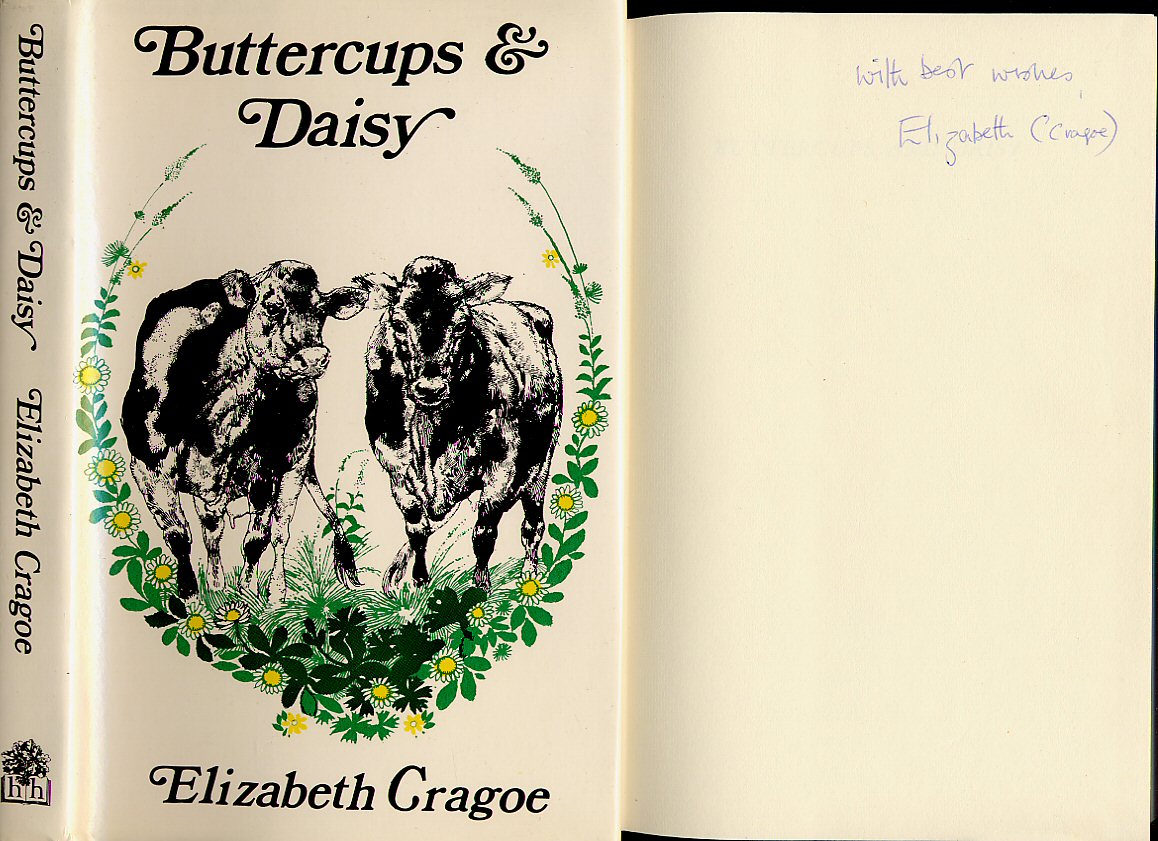 Buttercups & Daisy Elizabeth Cragoe
hh
Buttercups &
Daisy
Elizabeth Cragoe
with best wishes,
Elizabeth (Cragoe)